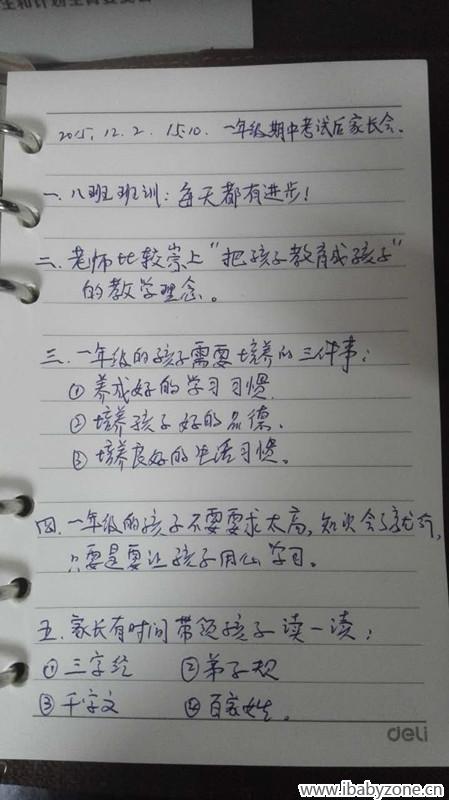 生和计划生育委员会
2015.12.2. 15:10. 一年级期中考试后家长会.
一.八班班训:每天都有进步!
二.老师比较崇上"把孩子教育成孩子"
的教学理念。
三.一年级的孩子需要培养的三件事:
①养成好的学习习惯.
②培养孩子好的品德.
③培养良好的生活习惯。
四.一年级的孩子不要要求太高,知识会了就行,
只要是要让孩子用心学习。
五.家长有时间带领孩子读一读:
①三字经 ②弟子规
③千字文 ④百家姓。
deli
www.ibabyzone.cn